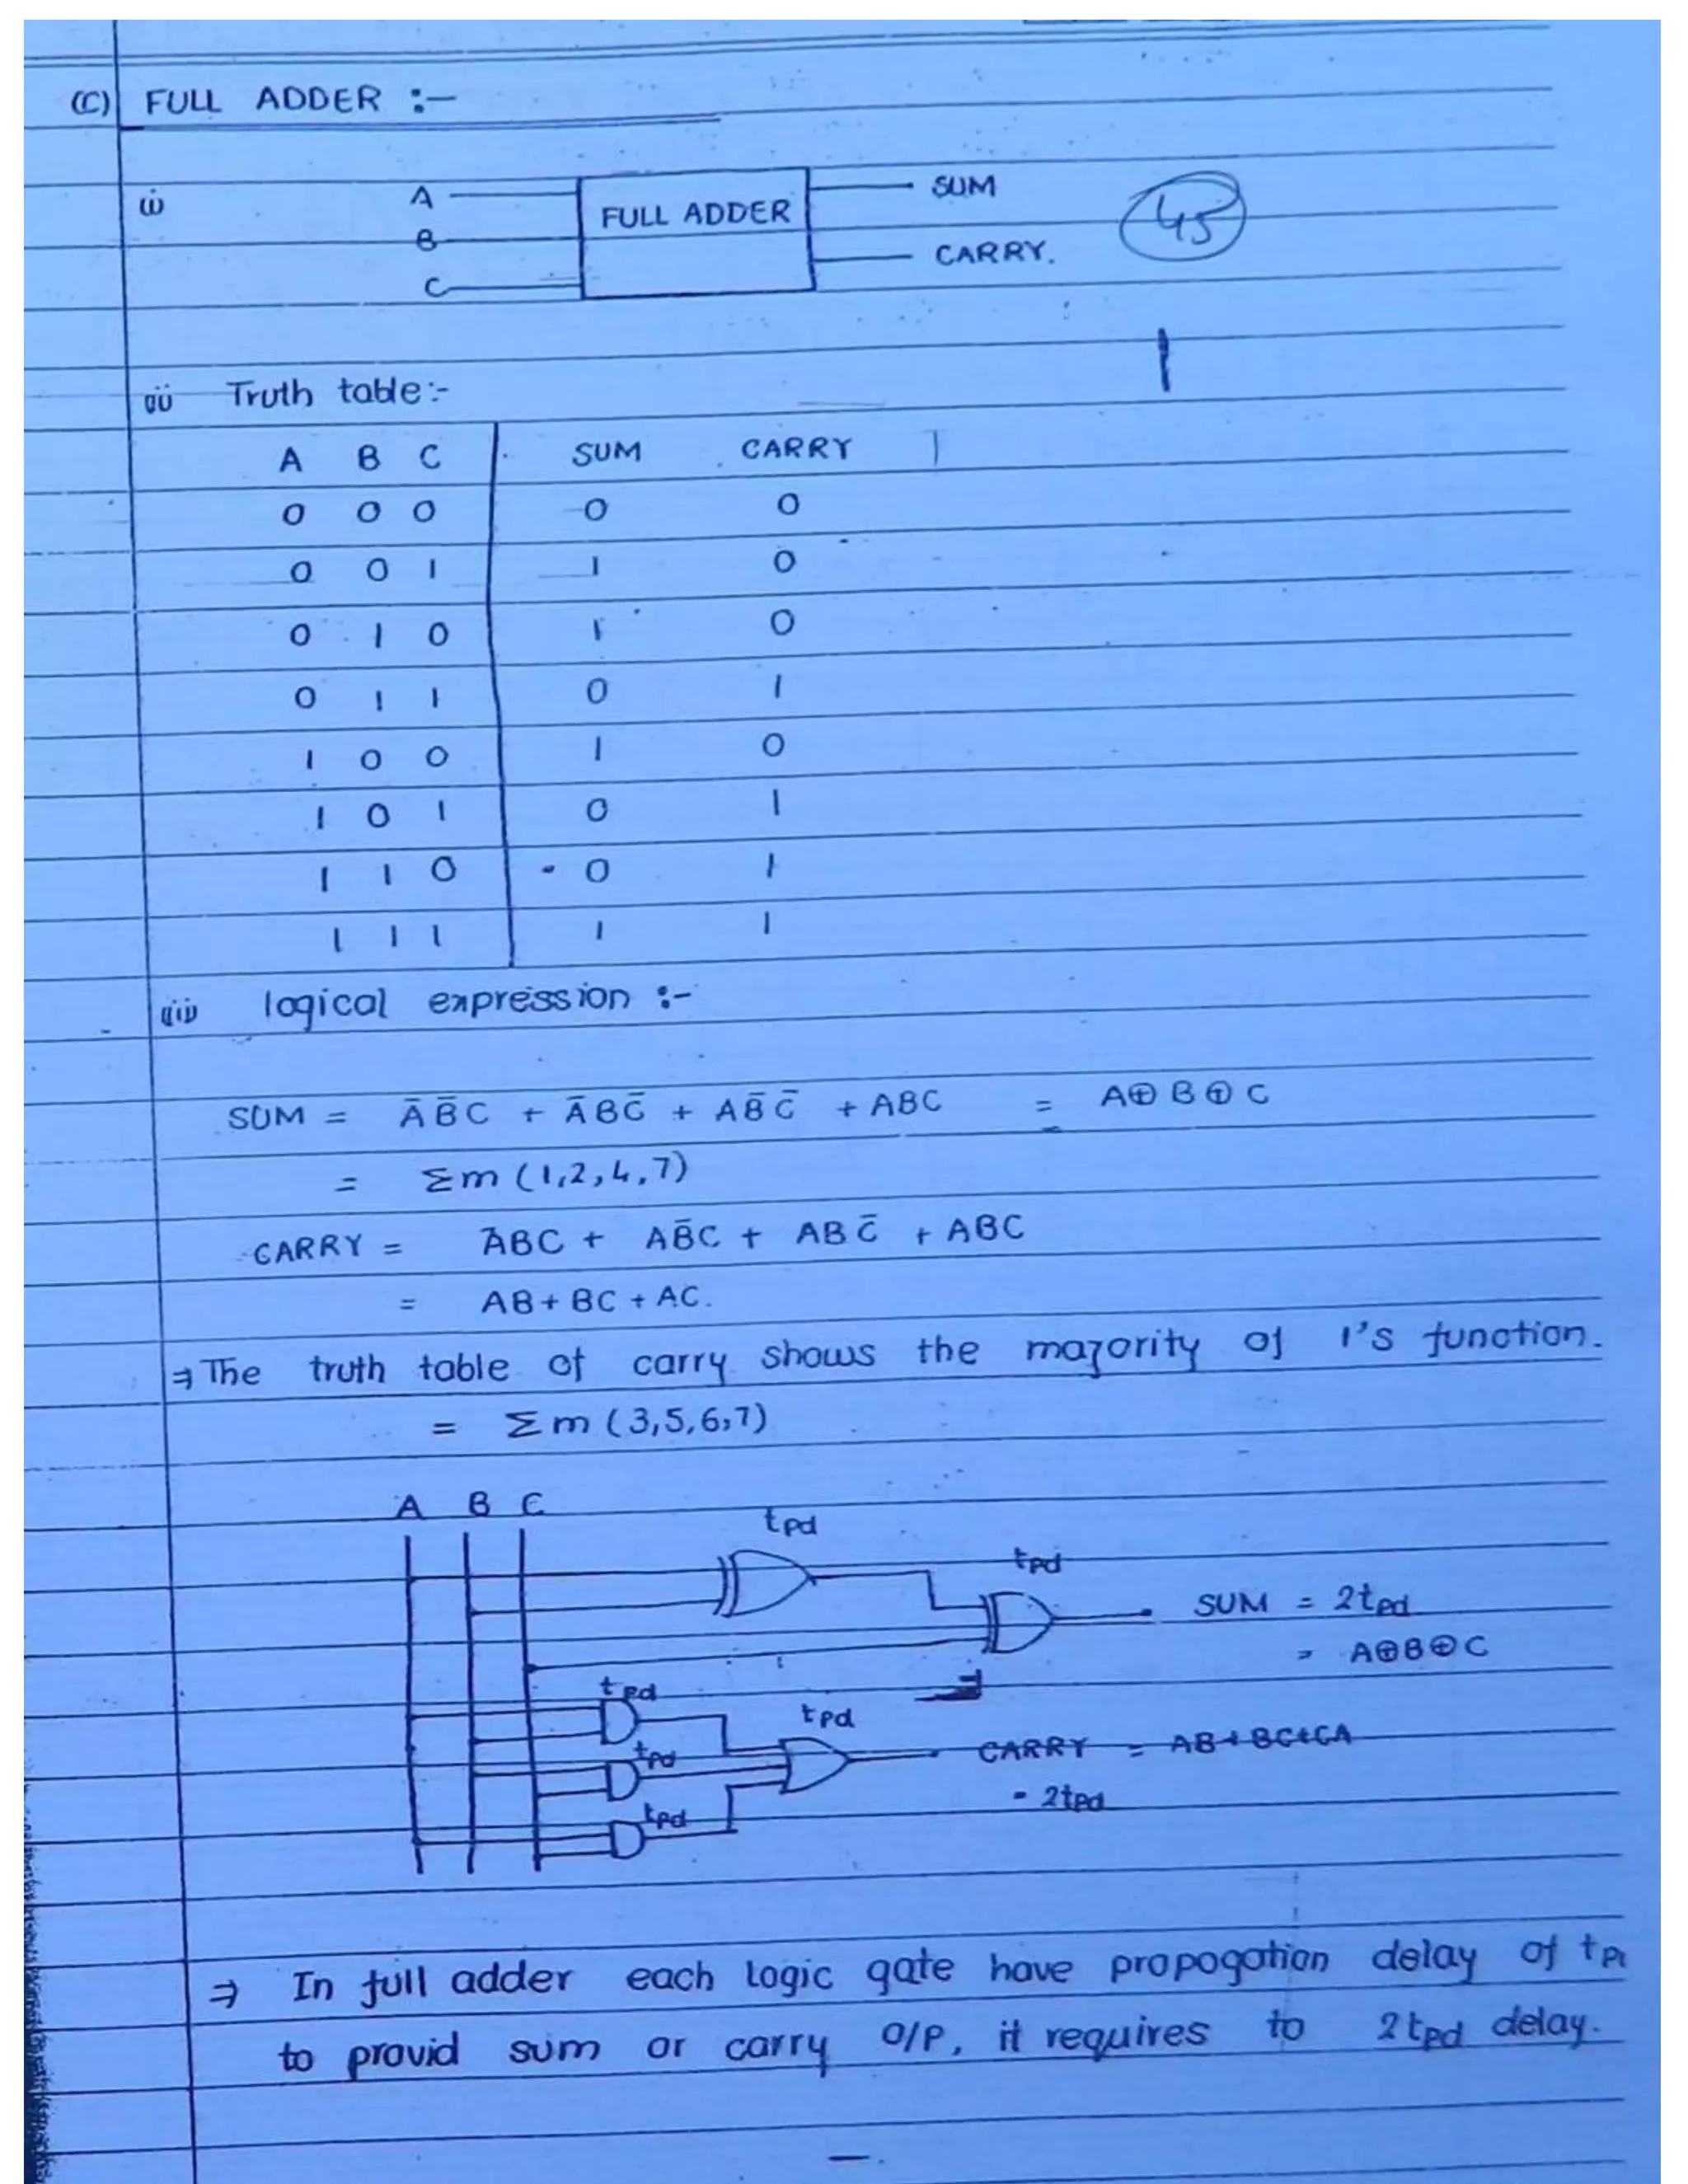 (C) FULL ADDER :-
(i) A FULL ADDER SUM
B CARRY.
C
45
(ii) Truth table:-
A B C SUM CARRY
0 0 0 0 0
0 0 1 1 0
0 1 0 1 0
0 1 1 0 1
1 0 0 1 0
1 0 1 0 1
1 1 0 0 1
1 1 1 1 1
(iii) logical expression :-
SUM = A̅ B̅ C + A̅ B C̅ + A B̅ C̅ + ABC = A⊕B⊕C
= Σm (1,2,4,7)
CARRY = A̅BC + AB̅C + ABC̅ + ABC
= AB + BC + AC.
⇒ The truth table of carry shows the majority of 1's function.
= Σm (3,5,6,7)
A B C
tpd
tpd
SUM = 2tpd
= A⊕B⊕C
tpd
tpd
CARRY = AB+BC+CA
tpd
= 2tpd
tpd
⇒ In full adder each logic gate have propogation delay of
to provid sum or carry O/P, it requires to 2tpd delay.